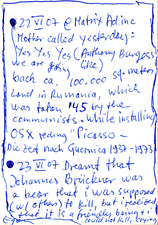 22 VI 07 @ Matrix Ad inc
(Mother called yesterday:
Yes Yes Yes (Anthony Burgess
we are going like)
back ca 100.000 sq. meters
Land in Rumania, which
was taken '45 by the
communists. while installing
OSX reding "Picasso -
Die Zeit nach Guernica 1937-1973
23 VI 07 Dreamt that
Johannes Brückner was
a bear that i was supposed
(w/ others) to kill, but i realized
that it is a friendly being & i
could not kill, trying